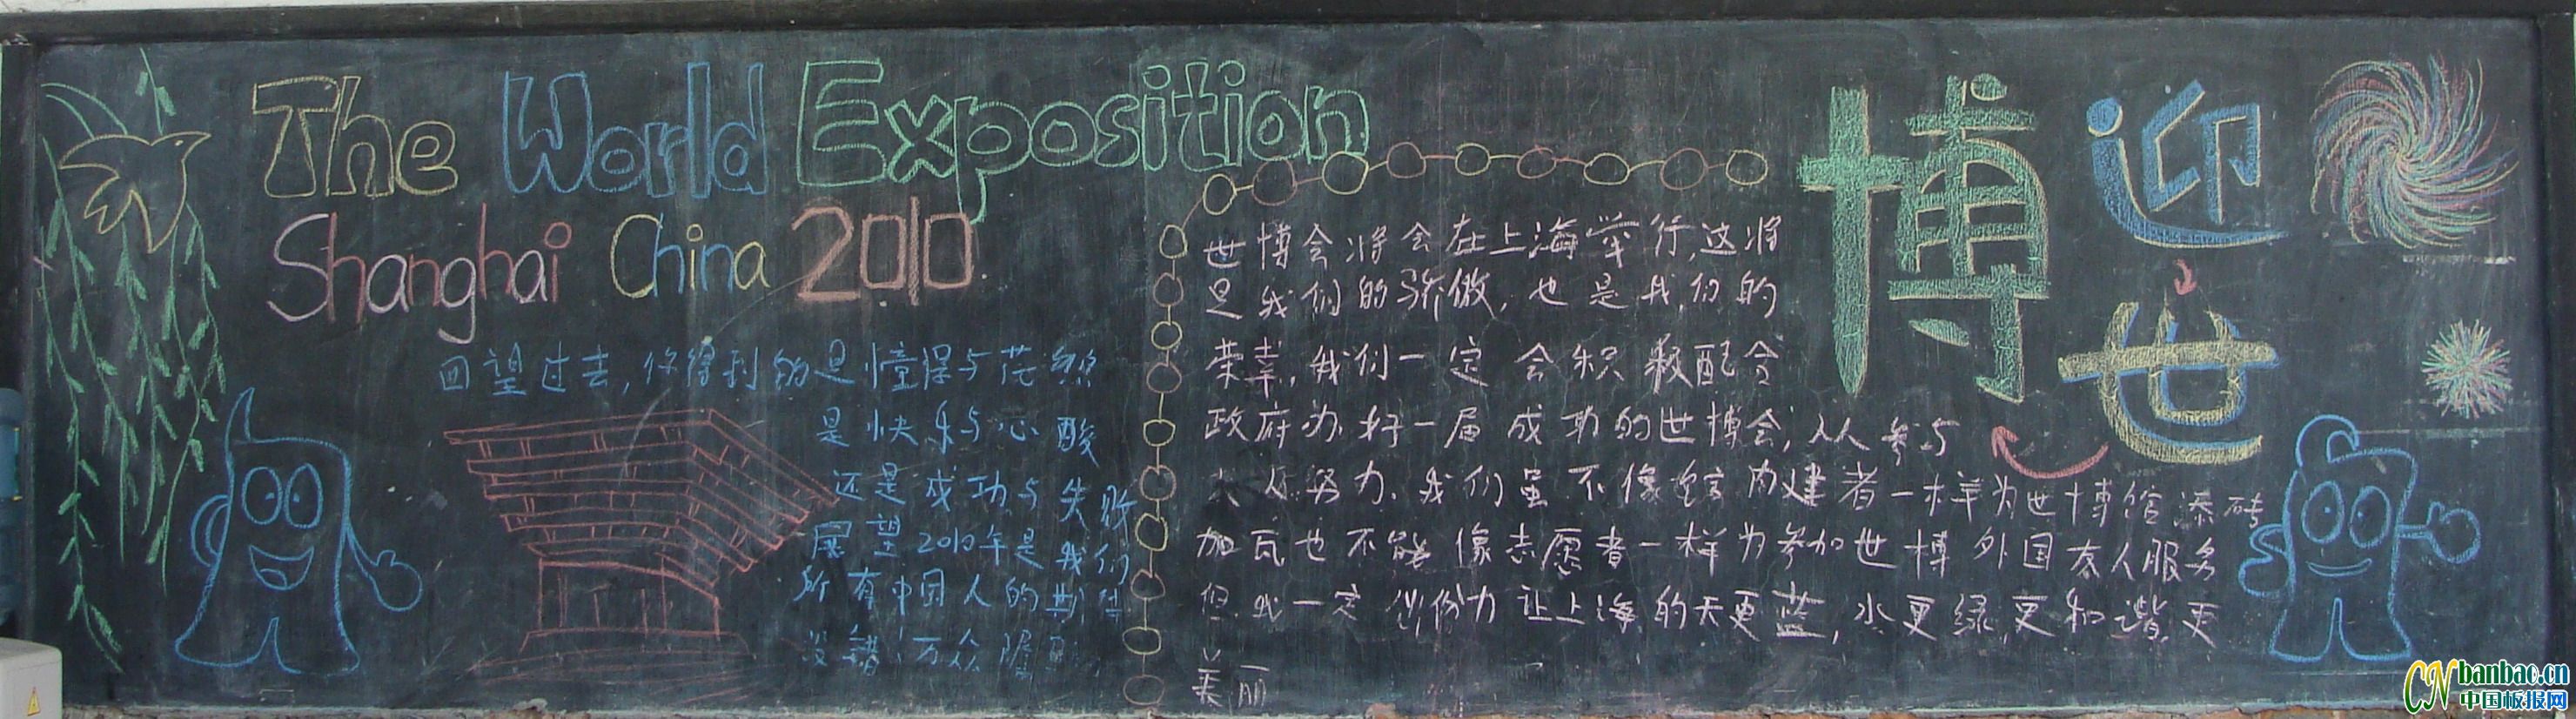 The World Exposition
Shanghai China 2010
回望过去,你得到的是憧憬与茫然
是快乐与心酸
还是成功与失败
展望2010年是我们
所有中国人的期待
没错!万众瞩
迎
世
博
世博会将会在上海举行,这将
是我们的骄傲,也是我们的
荣幸,我们一定会积极配合
政府办好一届成功的世博会,人人参与
大众努力,我们虽不像 建者一样为世博馆添砖
加瓦也不能像志愿者一样为参加世博外国友人服务
但我一定 份力让上海的天更蓝,水更绿,更和谐,更
美丽
CN banbao.cn
中国板报网